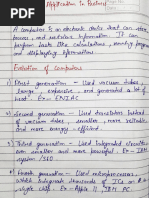 Application In Business
A computer is an electronic device that can store,
process, and manipulate information. It can
perform tasks like calculations, running programs
and displaying information.
Evolution of Computers
1) First generation - Used vacuum tubes,
Large, expensive, and generated a lot of
heat. Ex - ENIAC
2) Second generation - Used transistors instead
of vacuum tubes, smaller, more reliable
and more energy-efficient.
3) Third generation - Used integrated circuits
even smaller and more powerful. Ex - IBM
system / 360
4) Fourth generation - Used microprocessors,
which integrated thousands of ICs on a
single chip. Ex - Apple II, IBM PC